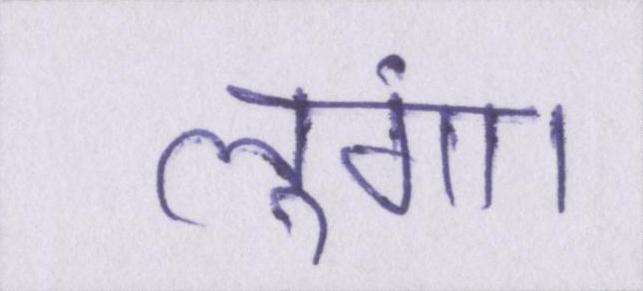 लूगां।